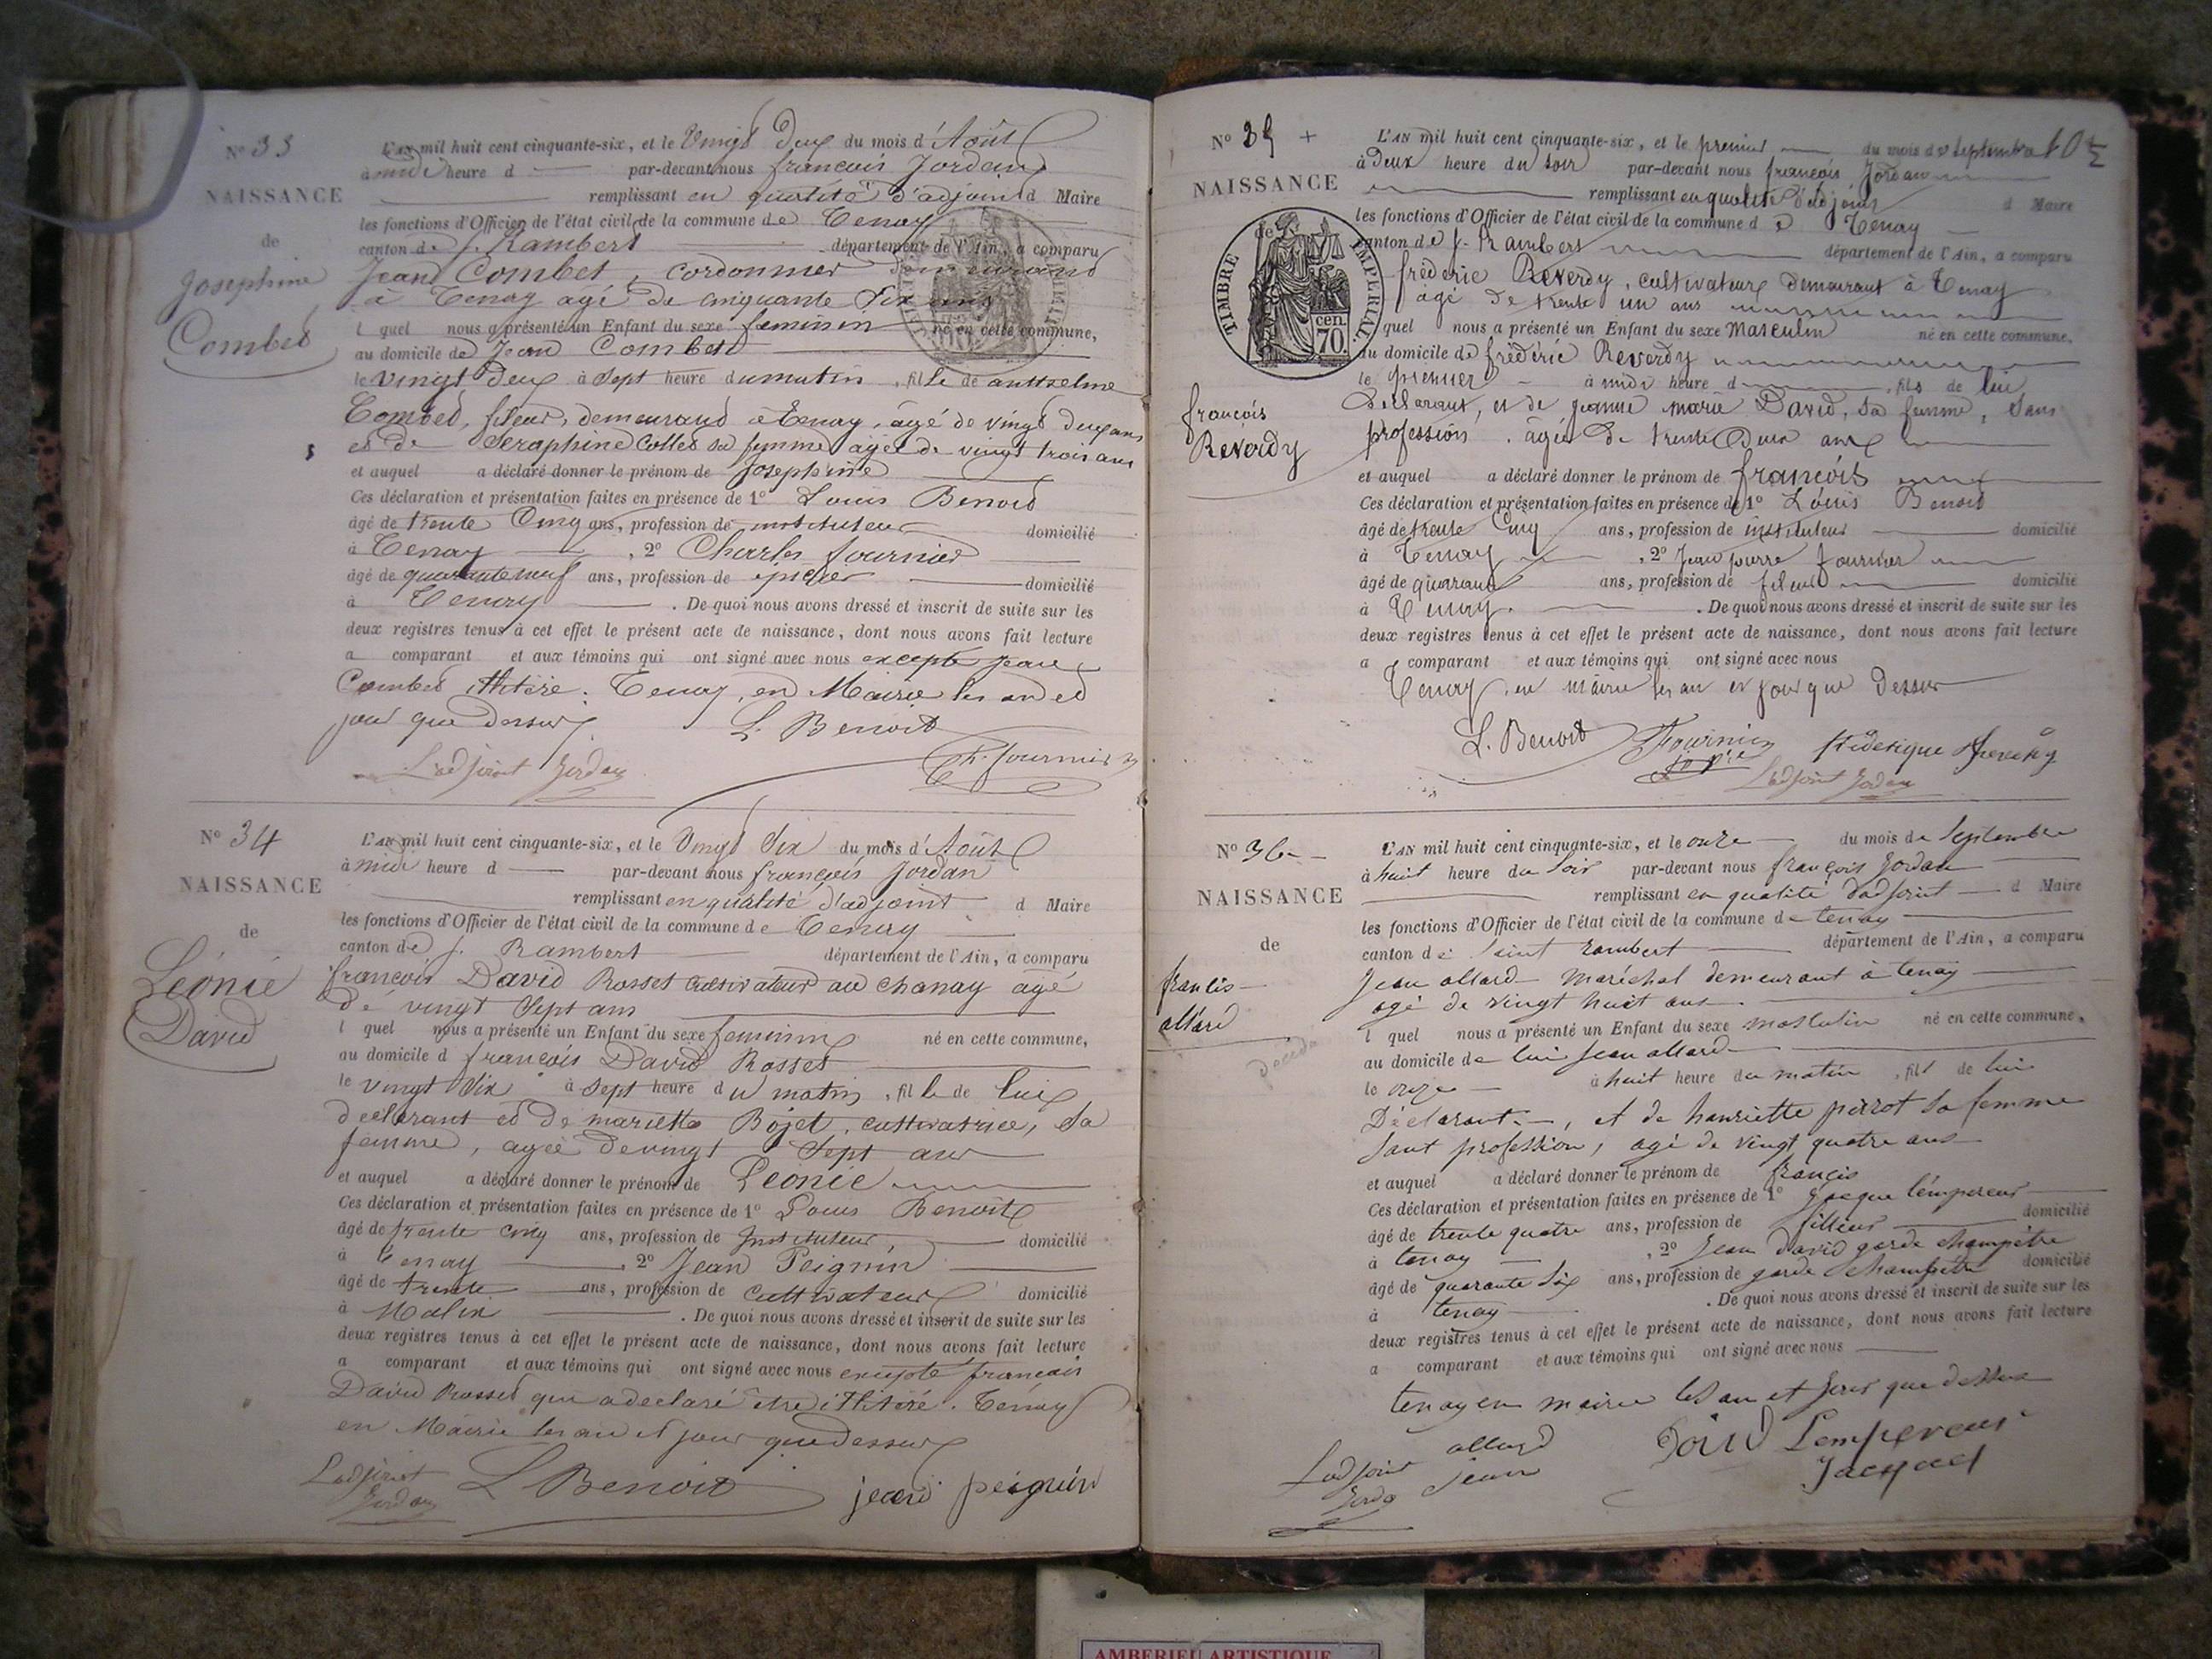 N° 33
NAISSANCE
de
Josephine
Combet
L'AN mil huit cent cinquante-six, et le Vingt deux du mois d'Août
à midi heure d par-devant nous françois Jordan
remplissant en qualité d'adjoint d Maire
les fonctions d'Officier de l'état civil de la commune de Tenay
canton de S. Rambert département de l'Ain, a comparu
Jean Combet, cordonnier demeurant
à Tenay agé de cinquante six ans
l quel nous a présenté un Enfant du sexe feminin né en cette commune,
au domicile de Jean Combet
le vingt deux à sept heure du matin, fille de anthelme
Combet, fileur, demeurant à Tenay, âgé de vingt deux ans
et de Seraphine Collet sa femme agée de vingt trois ans
et auquel a déclaré donner le prénom de Josephine
Ces déclaration et présentation faites en présence de 1° Louis Benoit
âgé de trente cinq ans, profession de instituteur domicilié
à Tenay, 2° Charles fournier
âgé de quarante neuf ans, profession de épicier domicilié
à Tenay. De quoi nous avons dressé et inscrit de suite sur les
deux registres tenus à cet effet le présent acte de naissance, dont nous avons fait lecture
a comparant et aux témoins qui ont signé avec nous excepté Jean
Combet illitéré. Tenay, en Mairie les an et
jour que dessus. L. Benoit
L'adjoint Jordan Ch. fournier
N° 34
NAISSANCE
de
Léonie
David
L'AN mil huit cent cinquante-six, et le Vingt six du mois d'Août
à midi heure d par-devant nous françois Jordan
remplissant en qualité d'adjoint d Maire
les fonctions d'Officier de l'état civil de la commune de Tenay
canton de S. Rambert département de l'Ain, a comparu
françois David Rosset cultivateur au chanay agé
de vingt sept ans
l quel nous a présenté un Enfant du sexe feminin né en cette commune,
au domicile d françois David Rosset
le vingt six à sept heure du matin, fille de lui
declarant et de mariette Bojet, cultivatrice, sa
femme, agée de vingt sept ans
et auquel a déclaré donner le prénom de Léonie
Ces déclaration et présentation faites en présence de 1° Louis Benoit
âgé de trente cinq ans, profession de Instituteur domicilié
à Tenay, 2° Jean Peignin
âgé de trente ans, profession de cultivateur domicilié
à Malix. De quoi nous avons dressé et inscrit de suite sur les
deux registres tenus à cet effet le présent acte de naissance, dont nous avons fait lecture
a comparant et aux témoins qui ont signé avec nous excepté françois
David Rosset qui a declaré etre illitéré. Tenay
en Mairie les an et jour que dessus
L'adjoint Jordan L Benoit jean peignin
N° 35 +
NAISSANCE
de
TIMBRE IMPERIAL
70 cen.
françois
Reverdy
L'AN mil huit cent cinquante-six, et le premier du mois de septembre
à deux heure du soir par-devant nous françois Jordan
remplissant en qualité d'adjoint d Maire
les fonctions d'Officier de l'état civil de la commune d e Tenay
canton de S. Rambert département de l'Ain, a comparu
fréderic Reverdy, cultivateur demeurant à Tenay
agé de trente un ans
quel nous a présenté un Enfant du sexe Masculin né en cette commune,
au domicile de fréderic Reverdy
le premier à midi heure d, fils de lui
Déclarant, et de jeanne marie David, sa femme, sans
profession, agée de trente deux ans
et auquel a déclaré donner le prénom de françois
Ces déclaration et présentation faites en présence de 1° Louis Benoit
âgé de trente cinq ans, profession de instituteur domicilié
à Tenay, 2° Jean pierre fournier
âgé de quarante ans, profession de fileur domicilié
à Tenay. De quoi nous avons dressé et inscrit de suite sur les
deux registres tenus à cet effet le présent acte de naissance, dont nous avons fait lecture
a comparant et aux témoins qui ont signé avec nous
Tenay, en mairie les an et jour que dessus
L. Benoit Fournier fréderique Reverdy
L'adjoint Jordan
N° 36
NAISSANCE
de
francis
allard
L'AN mil huit cent cinquante-six, et le onze du mois de septembre
à huit heure du soir par-devant nous françois Jordan
remplissant en qualité d'adjoint d Maire
les fonctions d'Officier de l'état civil de la commune de tenay
canton de saint rambert département de l'Ain, a comparu
Jean allard maréchal demeurant à tenay
agé de vingt huit ans
l quel nous a présenté un Enfant du sexe masculin né en cette commune,
au domicile de lui Jean allard
le onze à huit heure du matin, fils de lui
Déclarant, et de henriette pirrot sa femme
sant profession, agé de vingt quatre ans
et auquel a déclaré donner le prénom de francis
Ces déclaration et présentation faites en présence de 1° jacque l'empereur
âgé de trente quatre ans, profession de filleur domicilié
à tenay, 2° Jean David garde champêtre
âgé de quarante six ans, profession de garde champêtre domicilié
à tenay. De quoi nous avons dressé et inscrit de suite sur les
deux registres tenus à cet effet le présent acte de naissance, dont nous avons fait lecture
a comparant et aux témoins qui ont signé avec nous
tenay en mairie les an et jour que dessus
L'adjoint allard David Lempereur
jean Jacques
AMBERIEU ARTISTIQUE